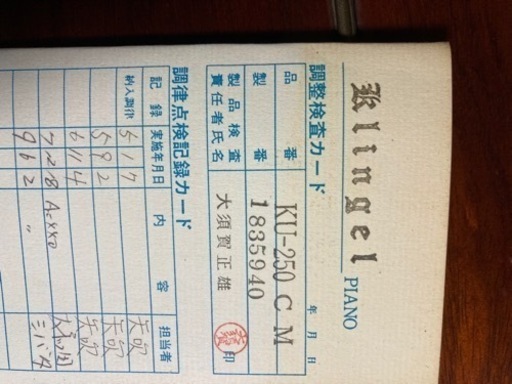 Klingel PIANO
調整検査カード 年 月 日
品番 KU-250 C M
製番 1835940
製品検査責任者氏名 大須賀正雄 印
調律点検記録カード
記録 実施年月日 内容 担当者
納入調律 5 1 7
5 9 2
6 11 4
7 2 8
9 6 2 〃